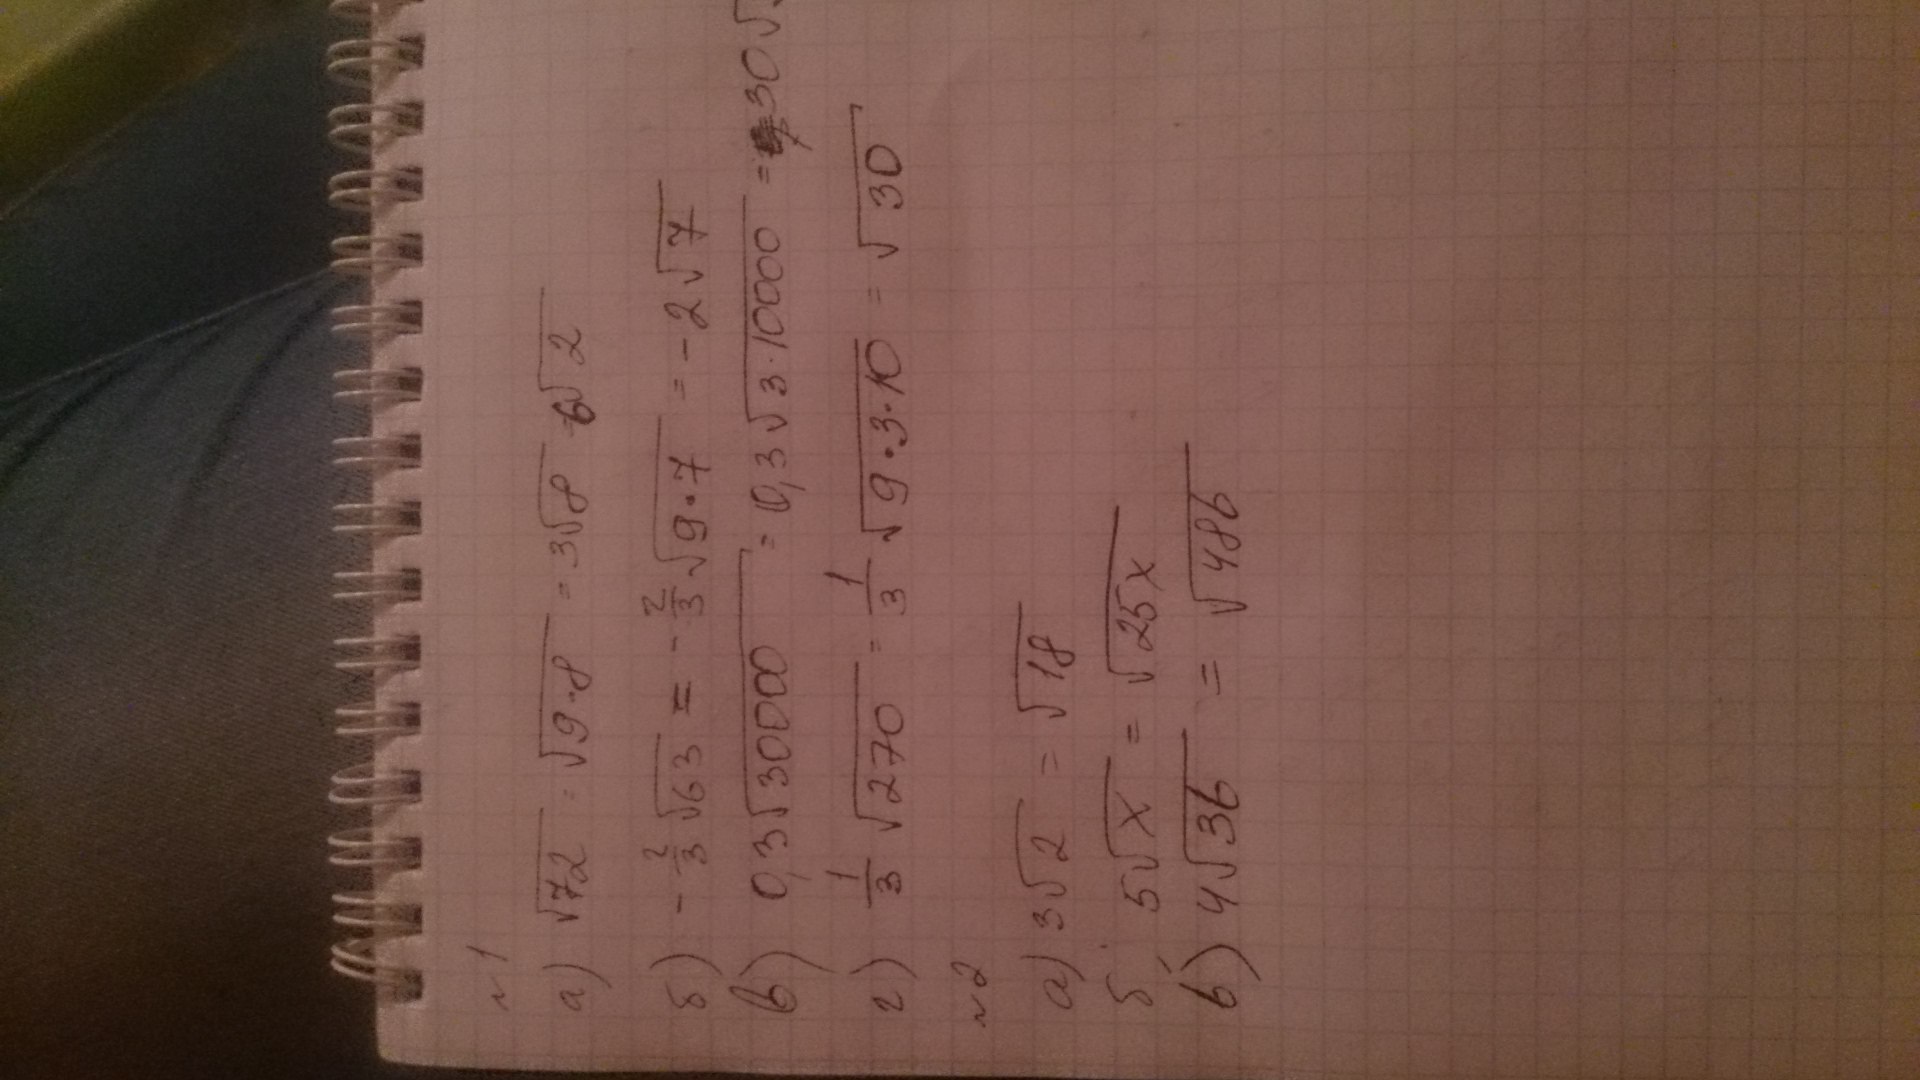 №1
а) √72 = √9·8 = 3√8 6√2
б) -2/3√63 = -2/3√9·7 = -2√7
в) 0,3√30000 = 0,3√3·10000 = 30√
г) 1/3√270 = 1/3√9·3·10 = √30
№2
а) 3√2 = √18
б) 5√x = √25x
в) 4√3b = √48b